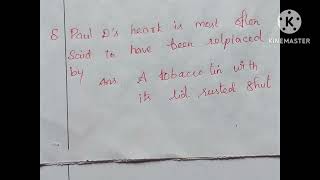 8 Paul D's heart is most often
said to have been relplaced
by Ans A tobacco tin with
its lid rusted shut
KINEMASTER